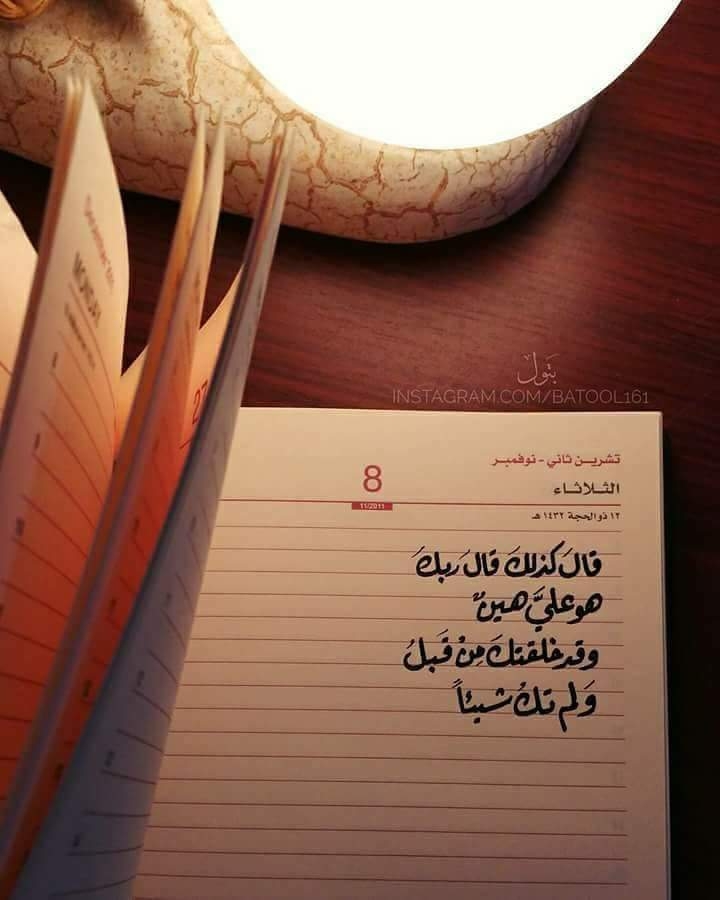 بتول
INSTAGRAM.COM/BATOOL161
MONDAY
27
تشرين ثاني - نوفمبر
8
الثلاثاء
11/2011
١٢ ذوالحجة ١٤٣٢ هـ
قالَ كذلكَ قالَ ربكَ
هو عليَّ هينٌ
وقد خلقتكَ مِنْ قَبلُ
وَلم تكُ شيئاً